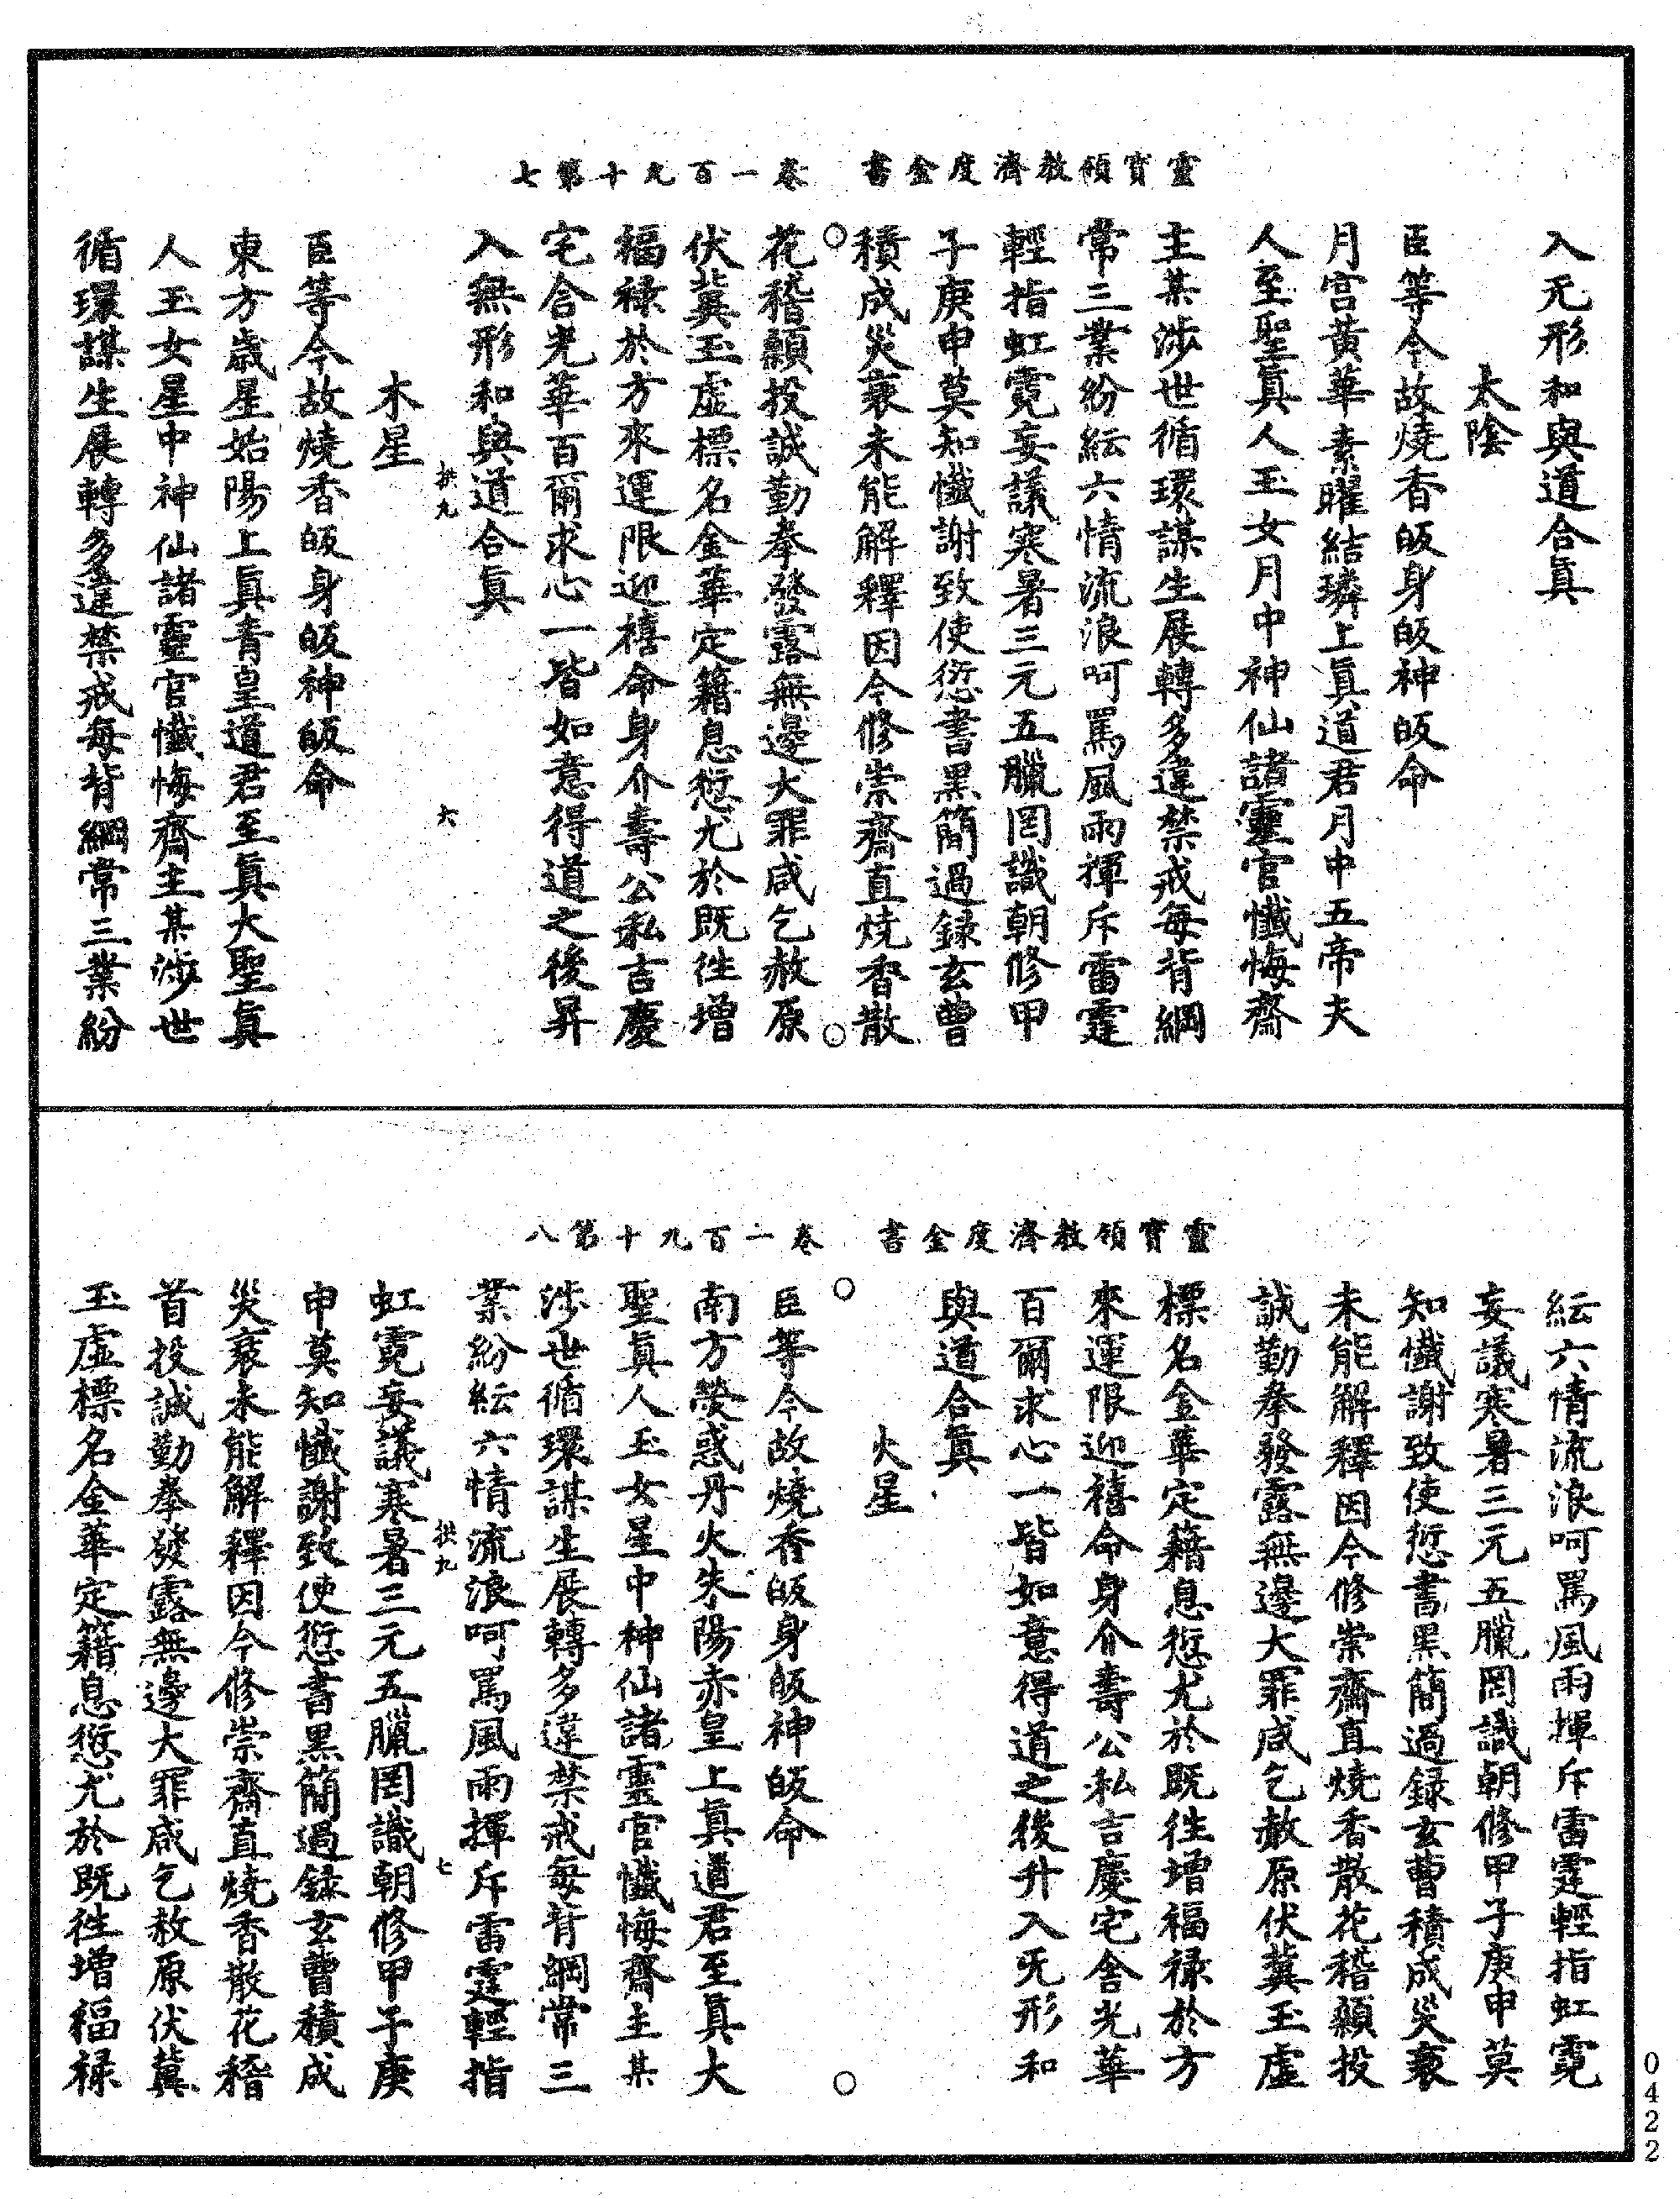 靈寶領教濟度金書　卷一百九十第七
入无形和與道合眞
太陰
臣等今故燒香皈身皈神皈命
月宫黃華素曜結璘上眞道君月中五帝夫
人至聖眞人玉女月中神仙諸靈官懺悔齋
主某涉世循環謀生展轉多違禁戒每背綱
常三業紛紜六情流浪呵罵風雨揮斥雷霆
輕指虹霓妄議寒暑三元五臘罔識朝修甲
子庚申莫知懺謝致使愆書黑簡過録玄曹
積成災衰未能解釋因今修崇齋直燒香散
花稽顙投誠勤拳發露無邊大罪咸乞赦原
伏冀玉虛標名金華定籍息愆尤於既徃增
福祿於方來運限迎禧命身介壽公私吉慶
宅舍光華百爾求心一皆如意得道之後昇
入無形和與道合眞
拱九　六
木星
臣等今故燒香皈身皈神皈命
東方歲星始陽上眞青皇道君至眞大聖眞
人玉女星中神仙諸靈官懺悔齋主某涉世
循環謀生展轉多違禁戒每背綱常三業紛
靈寶領教濟度金書　卷一百九十第八
紜六情流浪呵罵風雨揮斥雷霆輕指虹霓
妄議寒暑三元五臘罔識朝修甲子庚申莫
知懺謝致使愆書黑簡過録玄曹積成災衰
未能解釋因今修崇齋直燒香散花稽顙投
誠勤拳發露無邊大罪咸乞赦原伏冀玉虛
標名金華定籍息愆尤於既徃增福祿於方
來運限迎禧命身介壽公私吉慶宅舍光華
百爾求心一皆如意得道之後升入旡形和
與道合眞
火星
臣等今故燒香皈身皈神皈命
南方熒惑丹火朱陽赤皇上眞道君至眞大
聖眞人玉女星中神仙諸靈官懺悔齋主某
涉世循環謀生展轉多違禁戒每背綱常三
業紛紜六情流浪呵罵風雨揮斥雷霆輕指
拱九　七
虹霓妄議寒暑三元五臘罔識朝修甲子庚
申莫知懺謝致使愆書黑簡過録玄曹積成
災衰未能解釋因今修崇齋直燒香散花稽
首投誠勤拳發露無邊大罪咸乞赦原伏冀
玉虛標名金華定籍息愆尤於既徃增福祿
0422